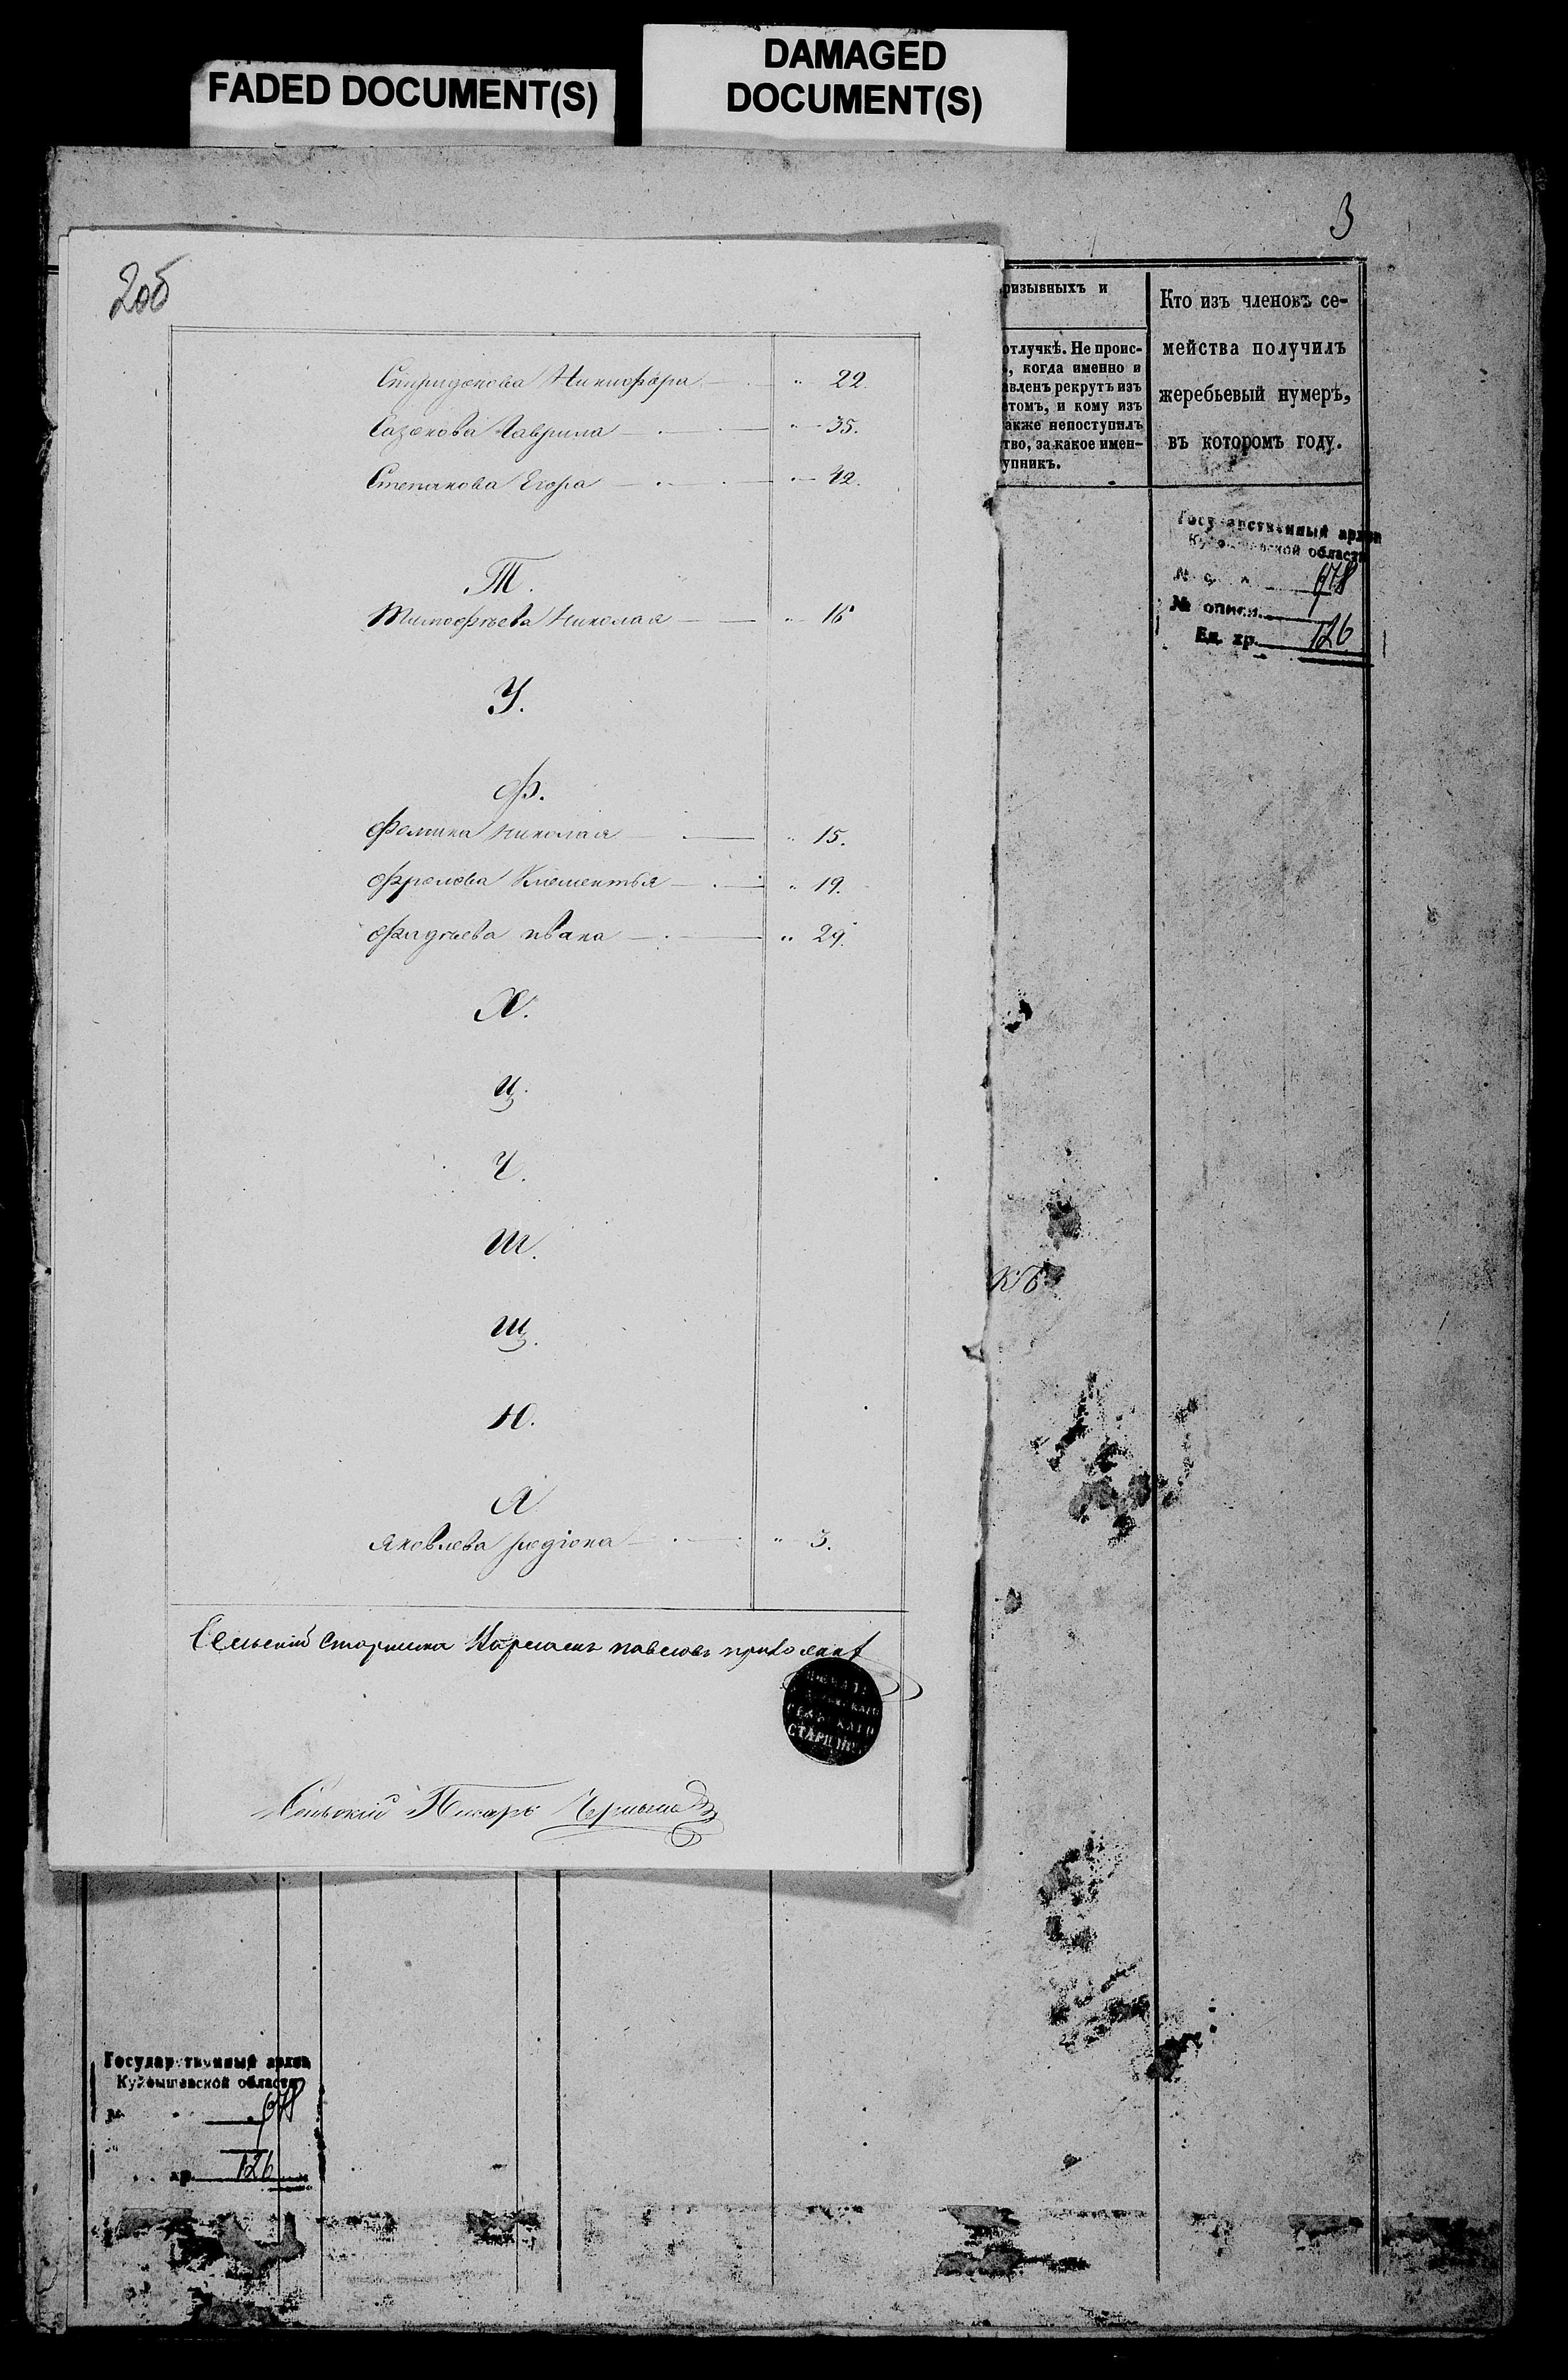 FADED DOCUMENT(S)
DAMAGED
DOCUMENT(S)
3
2об
Спиридонова Никифора " 22.
Сазонова Гаврила " 35.
Степанова Егора " 42.
Т.
Тимофѣева Николая " 16
У.
Ф.
Фомина Николая " 15.
Фролова Клементья " 19.
Фадѣева Ивана " 29.
Х.
Ц.
Ч.
Ш.
Щ.
Ю.
Я
Яковлева Родіона " 3.
Сельскій Старшина Павловъ
СТАРШИ
Сельскій Писарь
ризывныхъ и
отлучкѣ. Не проис-
, когда именно и
авленъ рекрутъ изъ
томъ, и кому изъ
акже непоступилъ
тво, за какое имен-
упникъ.
Кто изъ членовъ се-
мейства получилъ
жеребьевый нумеръ,
въ которомъ году.
Государственный архив
Куйбышевской области
678
№ описи
Ед. хр. 126
къ
Государственный архив
Куйбышевской области
678
хр. 126